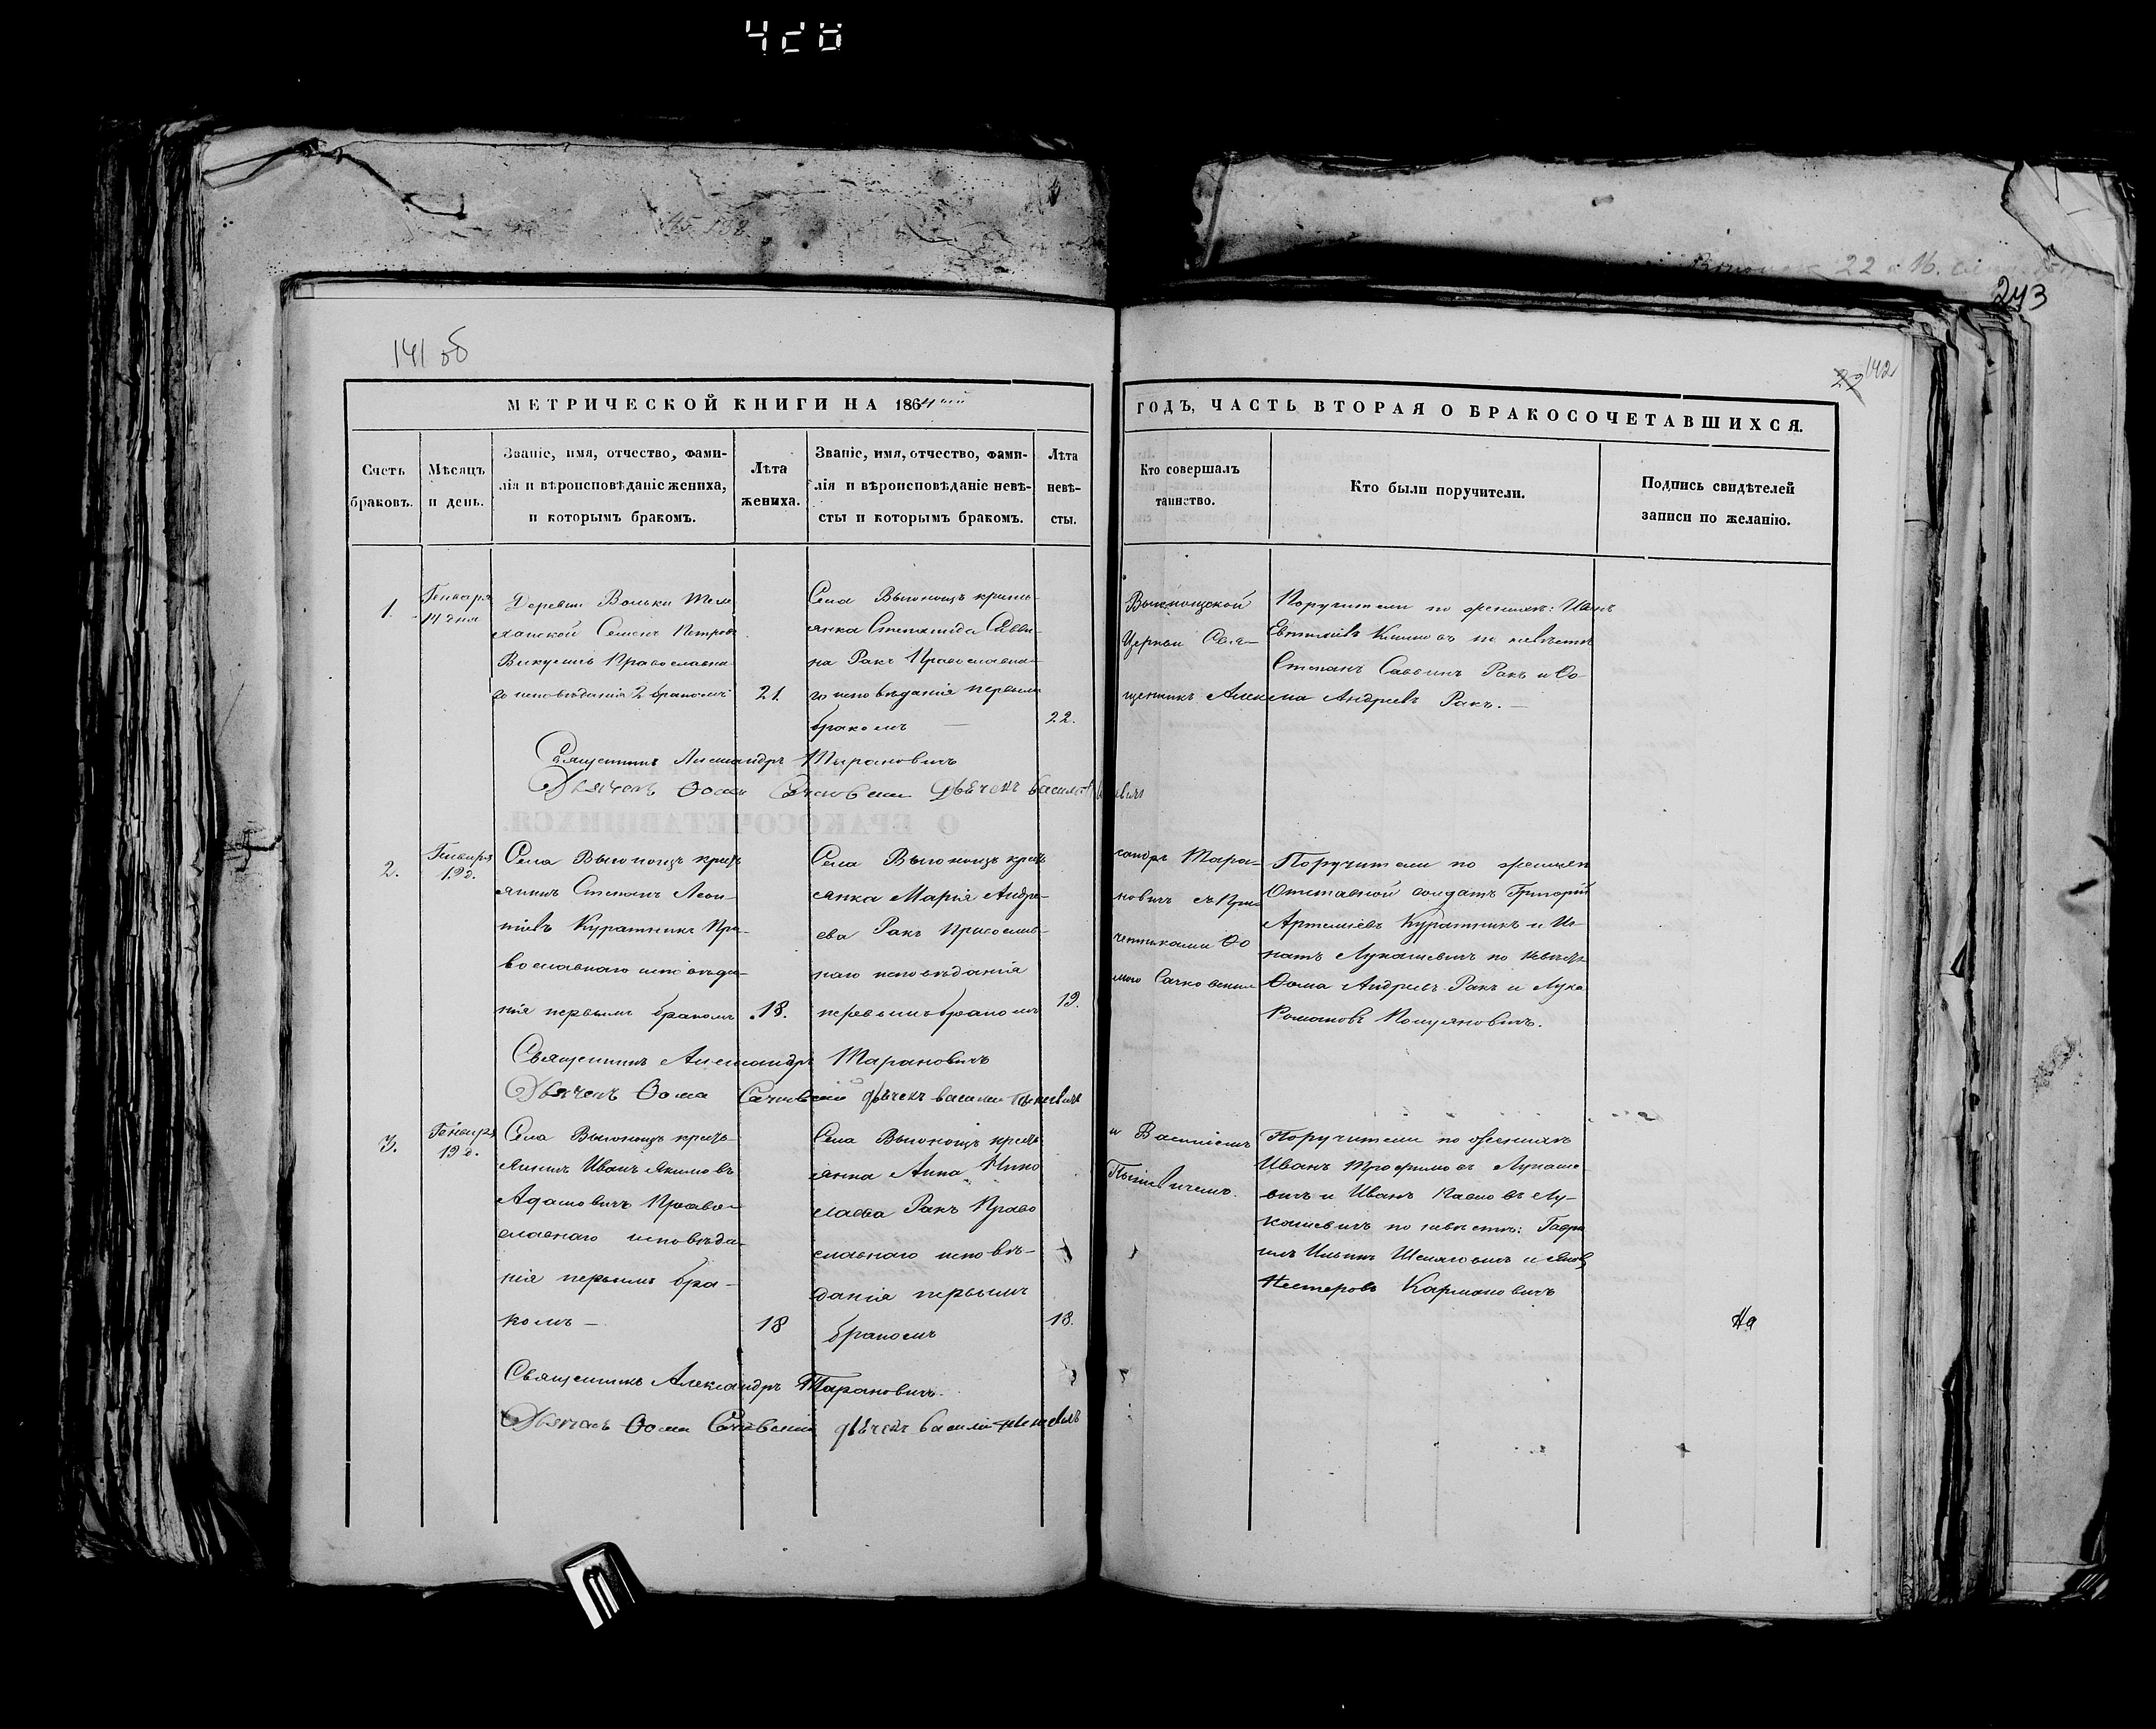 141 об
243
22 142
МЕТРИЧЕСКОЙ КНИГИ НА 1864 ый
ГОДЪ, ЧАСТЬ ВТОРАЯ О БРАКОСОЧЕТАВШИХСЯ.
Счетъ
браковъ.
Мѣсяцъ
и день.
Званіе, имя, отчество, фами-
лія и вѣроисповѣданіе жениха,
и которымъ бракомъ.
Лѣта
жениха.
Званіе, имя, отчество, фами-
лія и вѣроисповѣданіе невѣ-
сты и которымъ бракомъ.
Лѣта
невѣ-
сты.
Кто совершалъ
таинство.
Кто были поручители.
Подпись свидѣтелей
записи по желанію.
1.
Генваря
14 дня
Деревни Вольки Теле
ханской Семенъ Петровъ
Викулинъ Православна
го исповѣданія 2 бракомъ
21.
Села Выгонощъ кресть-
янка Степанида Савви-
на Ракъ Православна-
го исповѣданія первымъ
бракомъ —
22.
Выгонощской
Церкви Свя-
щенникъ Алек
Поручители по женихѣ: Иванъ
Евтихіевъ по невѣстѣ
Степанъ Саввинъ Ракъ и Ѳо
ма Андреевъ Ракъ. —
Священникъ Александръ Тарановичъ
Дьячекъ Ѳома Сачковскій Дьячекъ василій
2.
Генваря
19 д.
Села Выгонощъ кресть
янинъ Степанъ Леон-
тіевъ Куратникъ Пра-
вославнаго исповѣда-
нія первымъ бракомъ
18.
Села Выгонощъ кресть
янка Марія Андре-
ева Ракъ Православ-
наго исповѣданія
первымъ бракомъ
19.
сандръ Тара-
новичъ съ При-
четниками Ѳо
мою Сачковским
Поручители по женихѣ
Отставной солдатъ Григорій
Артеміевъ Куратникъ и Иг-
натъ Лукашевичъ по невѣстѣ
Ѳома Андреевъ Ракъ и Лука
Романовъ
Священникъ Александръ Тарановичъ
Дьячекъ Ѳома Сачковскій дьячекъ василій
3.
Генваря
19 д.
Села Выгонощъ кресть-
янинъ Иванъ Якимовъ
Адамовичъ Право-
славнаго исповѣда-
нія первымъ бра-
комъ —
18
Села Выгонощъ кресть
янка Анна Нико
лаева Ракъ Право
славнаго исповѣ-
данія первымъ
бракомъ
18.
и Василіемъ
Поручители по женихѣ
Иванъ Трофимовъ Лукаше
вичъ и Иванъ Павловъ Лу-
кашевичъ по невѣстѣ: Гаври
илъ Ильинъ и
Нестеровъ Кармановичъ
На
Священникъ Александръ Тарановичъ.
Дьячекъ Ѳома Сачковскій дьячекъ василій